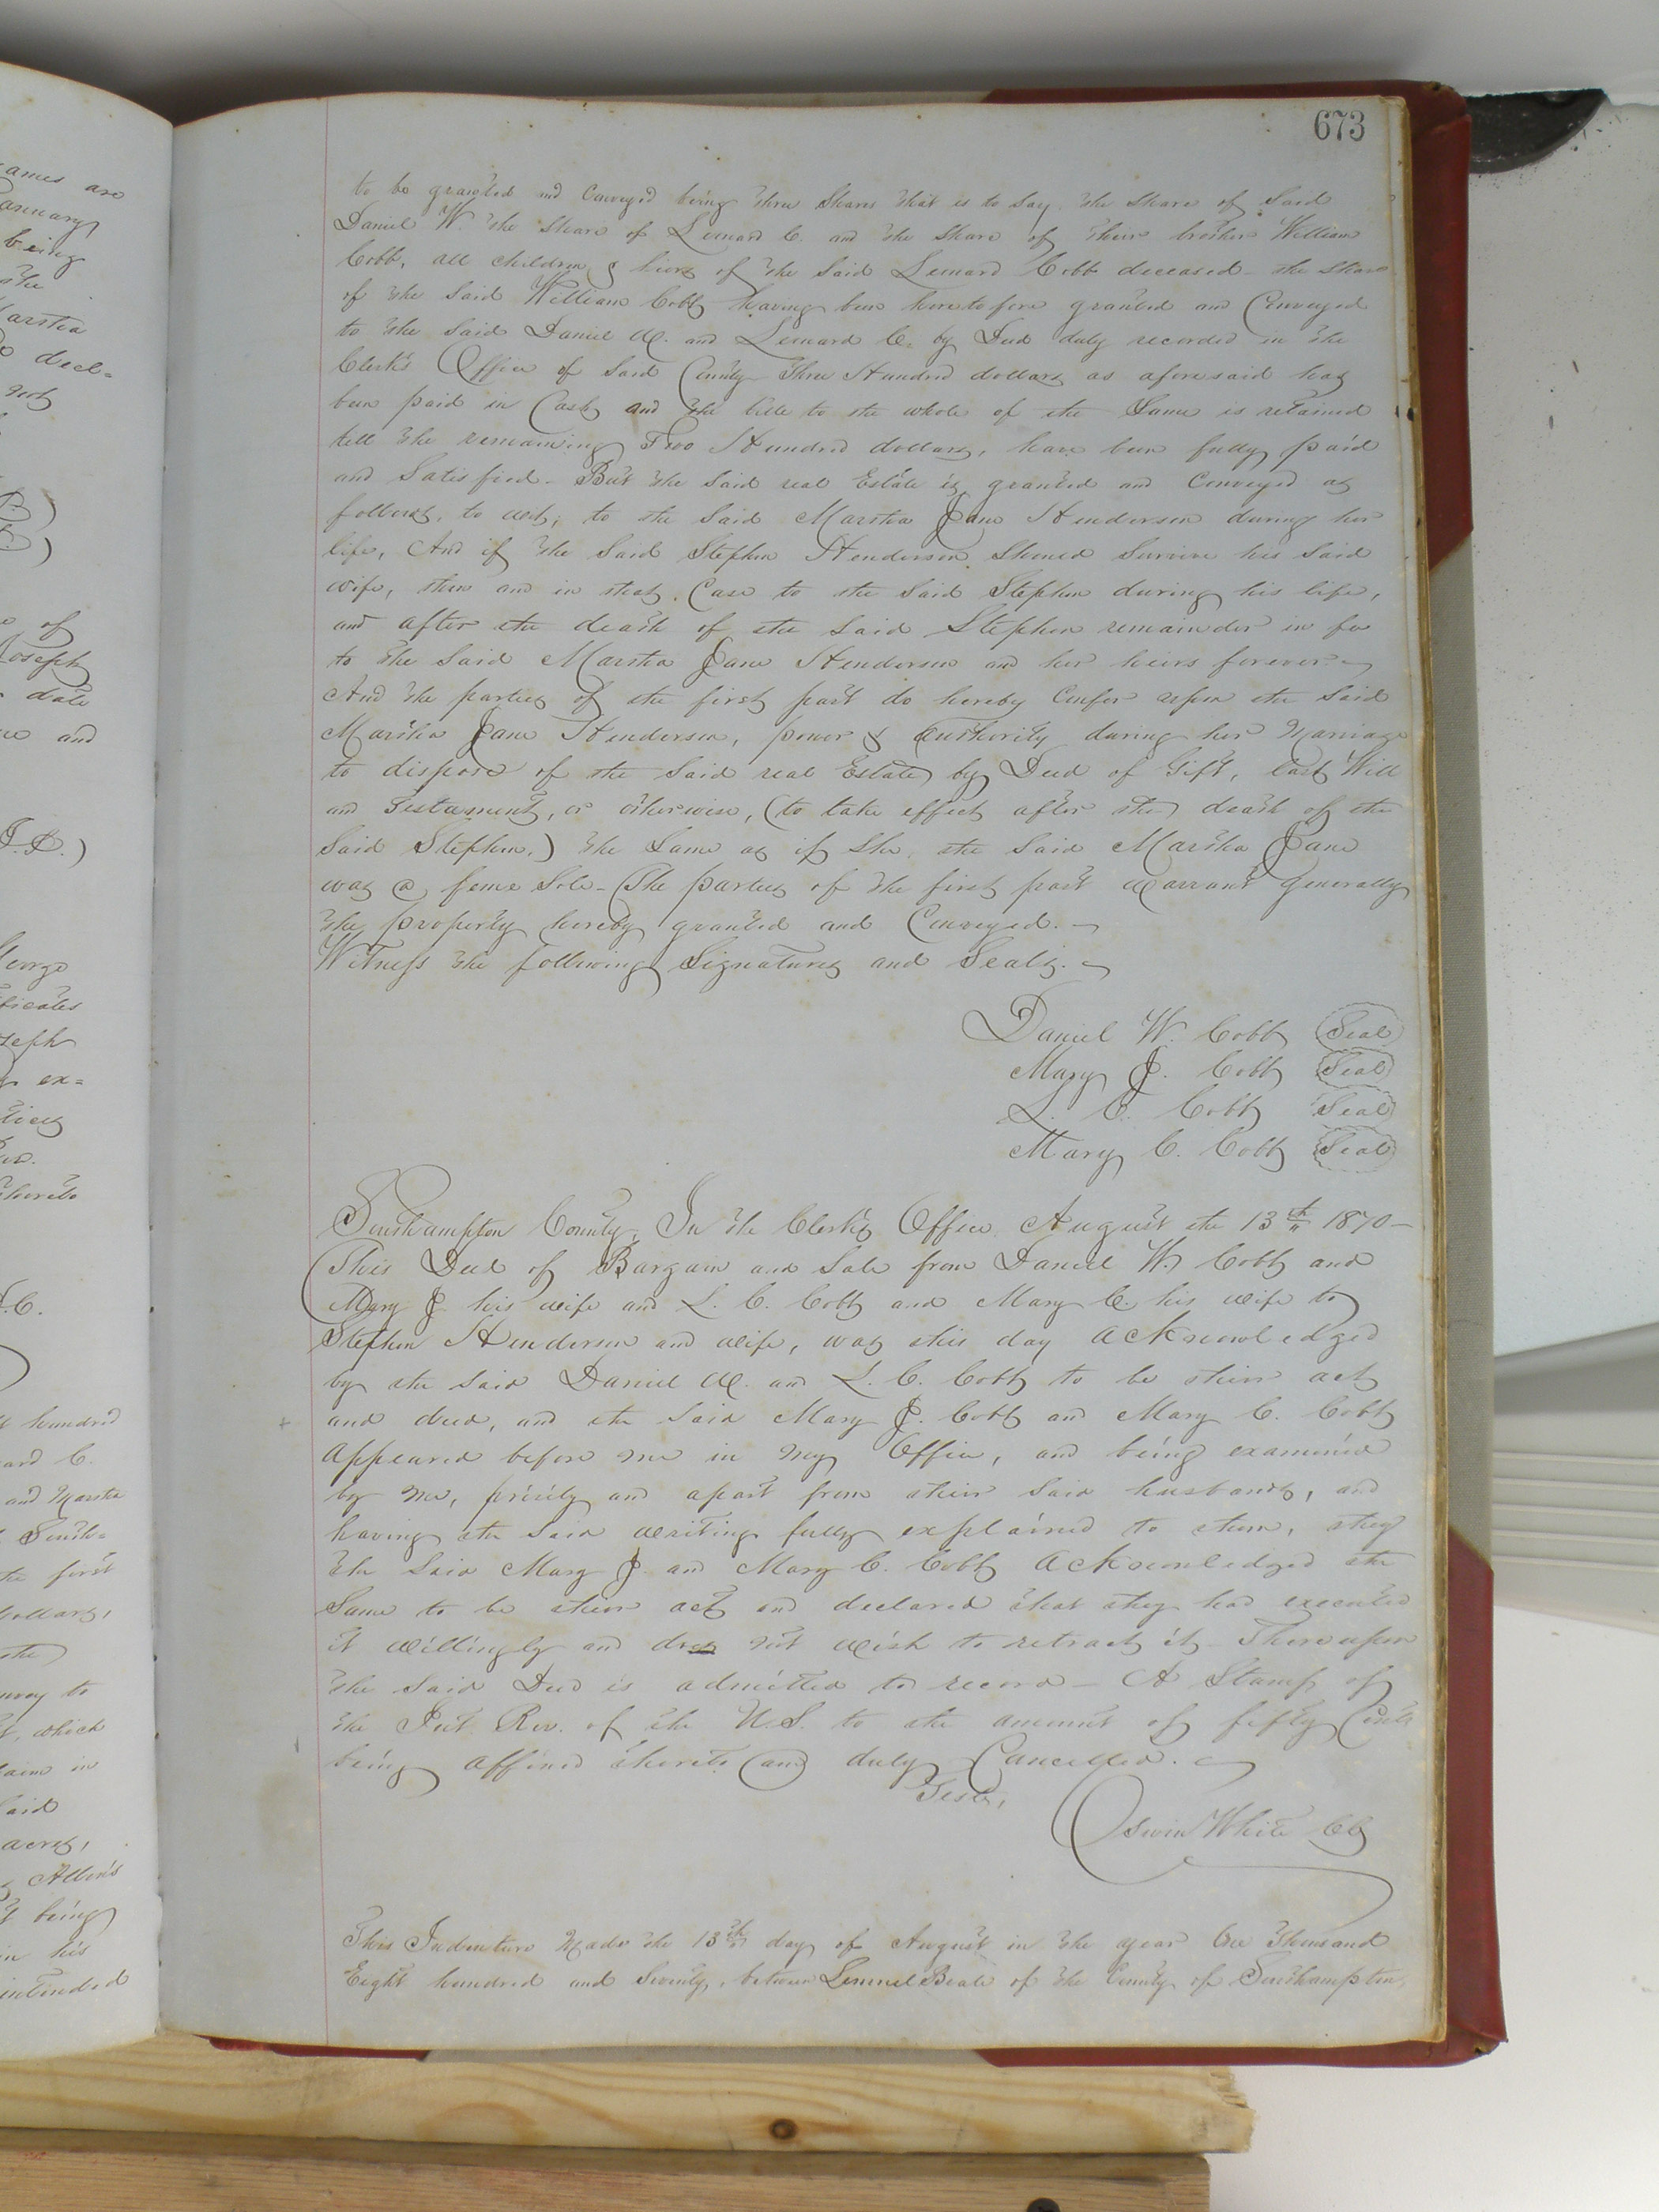 ames are
anuary
being
the
artha
decl=
not
B)
of
Joseph
date
and
J.P.)
George
ficates
seph
ex=
ties
thereto
C.
hundred
ard C.
and Martha
South=
the first
dollars,
the
nvey to
t, which
said
acres,
Allen's
t being
in his
intended
673
to be granted and Conveyed being three Shares that is to Say. the Share of Said
Daniel W. the Share of Lemard C. and the Share of their brother William
Cobb, all children & heirs of the Said Lemard Cobb deceased - the Share
of the Said William Cobb having been heretofore granted and Conveyed
to the Said Daniel W. and Lemard C. by Deed duly recorded in the
Clerk's Office of Said County Three Hundred dollars as aforesaid has
been paid in Cash and the title to the whole of the Same is retained
till the remaining Two Hundred dollars, have been fully paid
and Satisfied - But the Said real Estate is granted and Conveyed as
follows, to wit; to the Said Martha Jane Henderson during her
life, And if the Said Stephen Henderson Should Survive his Said
wife, then and in that Case to the Said Stephen during his life,
and after the death of the Said Stephen remainder in fee
to the Said Martha Jane Henderson and her heirs forever.
And the parties of the first part do hereby Confer upon the Said
Martha Jane Henderson, power & Authority during her Marriage
to dispose of the Said real Estate by Deed of Gift, last Will
and Testament, or otherwise, (to take effect after the death of the
Said Stephen.) the Same as if She, the Said Martha Jane
was a feme Sole - The parties of the first part Warrant Generally
the property hereby granted and Conveyed.
Witness the following Signatures and Seals.
Daniel W. Cobb Seal
Mary J. Cobb Seal
L. C. Cobb Seal
Mary C. Cobb Seal
Southampton County, In the Clerk's Office August the 13th 1870-
This Deed of Bargain and Sale from Daniel W. Cobb and
Mary J his wife and L. C. Cobb and Mary C. his wife to
Stephen Henderson and wife, was this day acknowledged
by the Said Daniel W. and L. C. Cobb to be their act
and deed, and the Said Mary J. Cobb and Mary C. Cobb
appeared before me in my Office, and being examined
by me, privily and apart from their Said husbands, and
having the Said writing fully explained to them, they
the Said Mary J. and Mary C. Cobb acknowledged the
Same to be their act and declared that they had executed
it willingly and do not wish to retract it - Thereupon
the Said Deed is admitted to record - A Stamp of
the Int. Rev. of the U.S. to the amount of fifty Cents
being affixed thereto and duly Cancelled.
Teste,
Oswin White Clk
This Indenture Made the 13th day of August in the year One Thousand
Eight hundred and Seventy, between Lemuel Beale of the County of Southampton